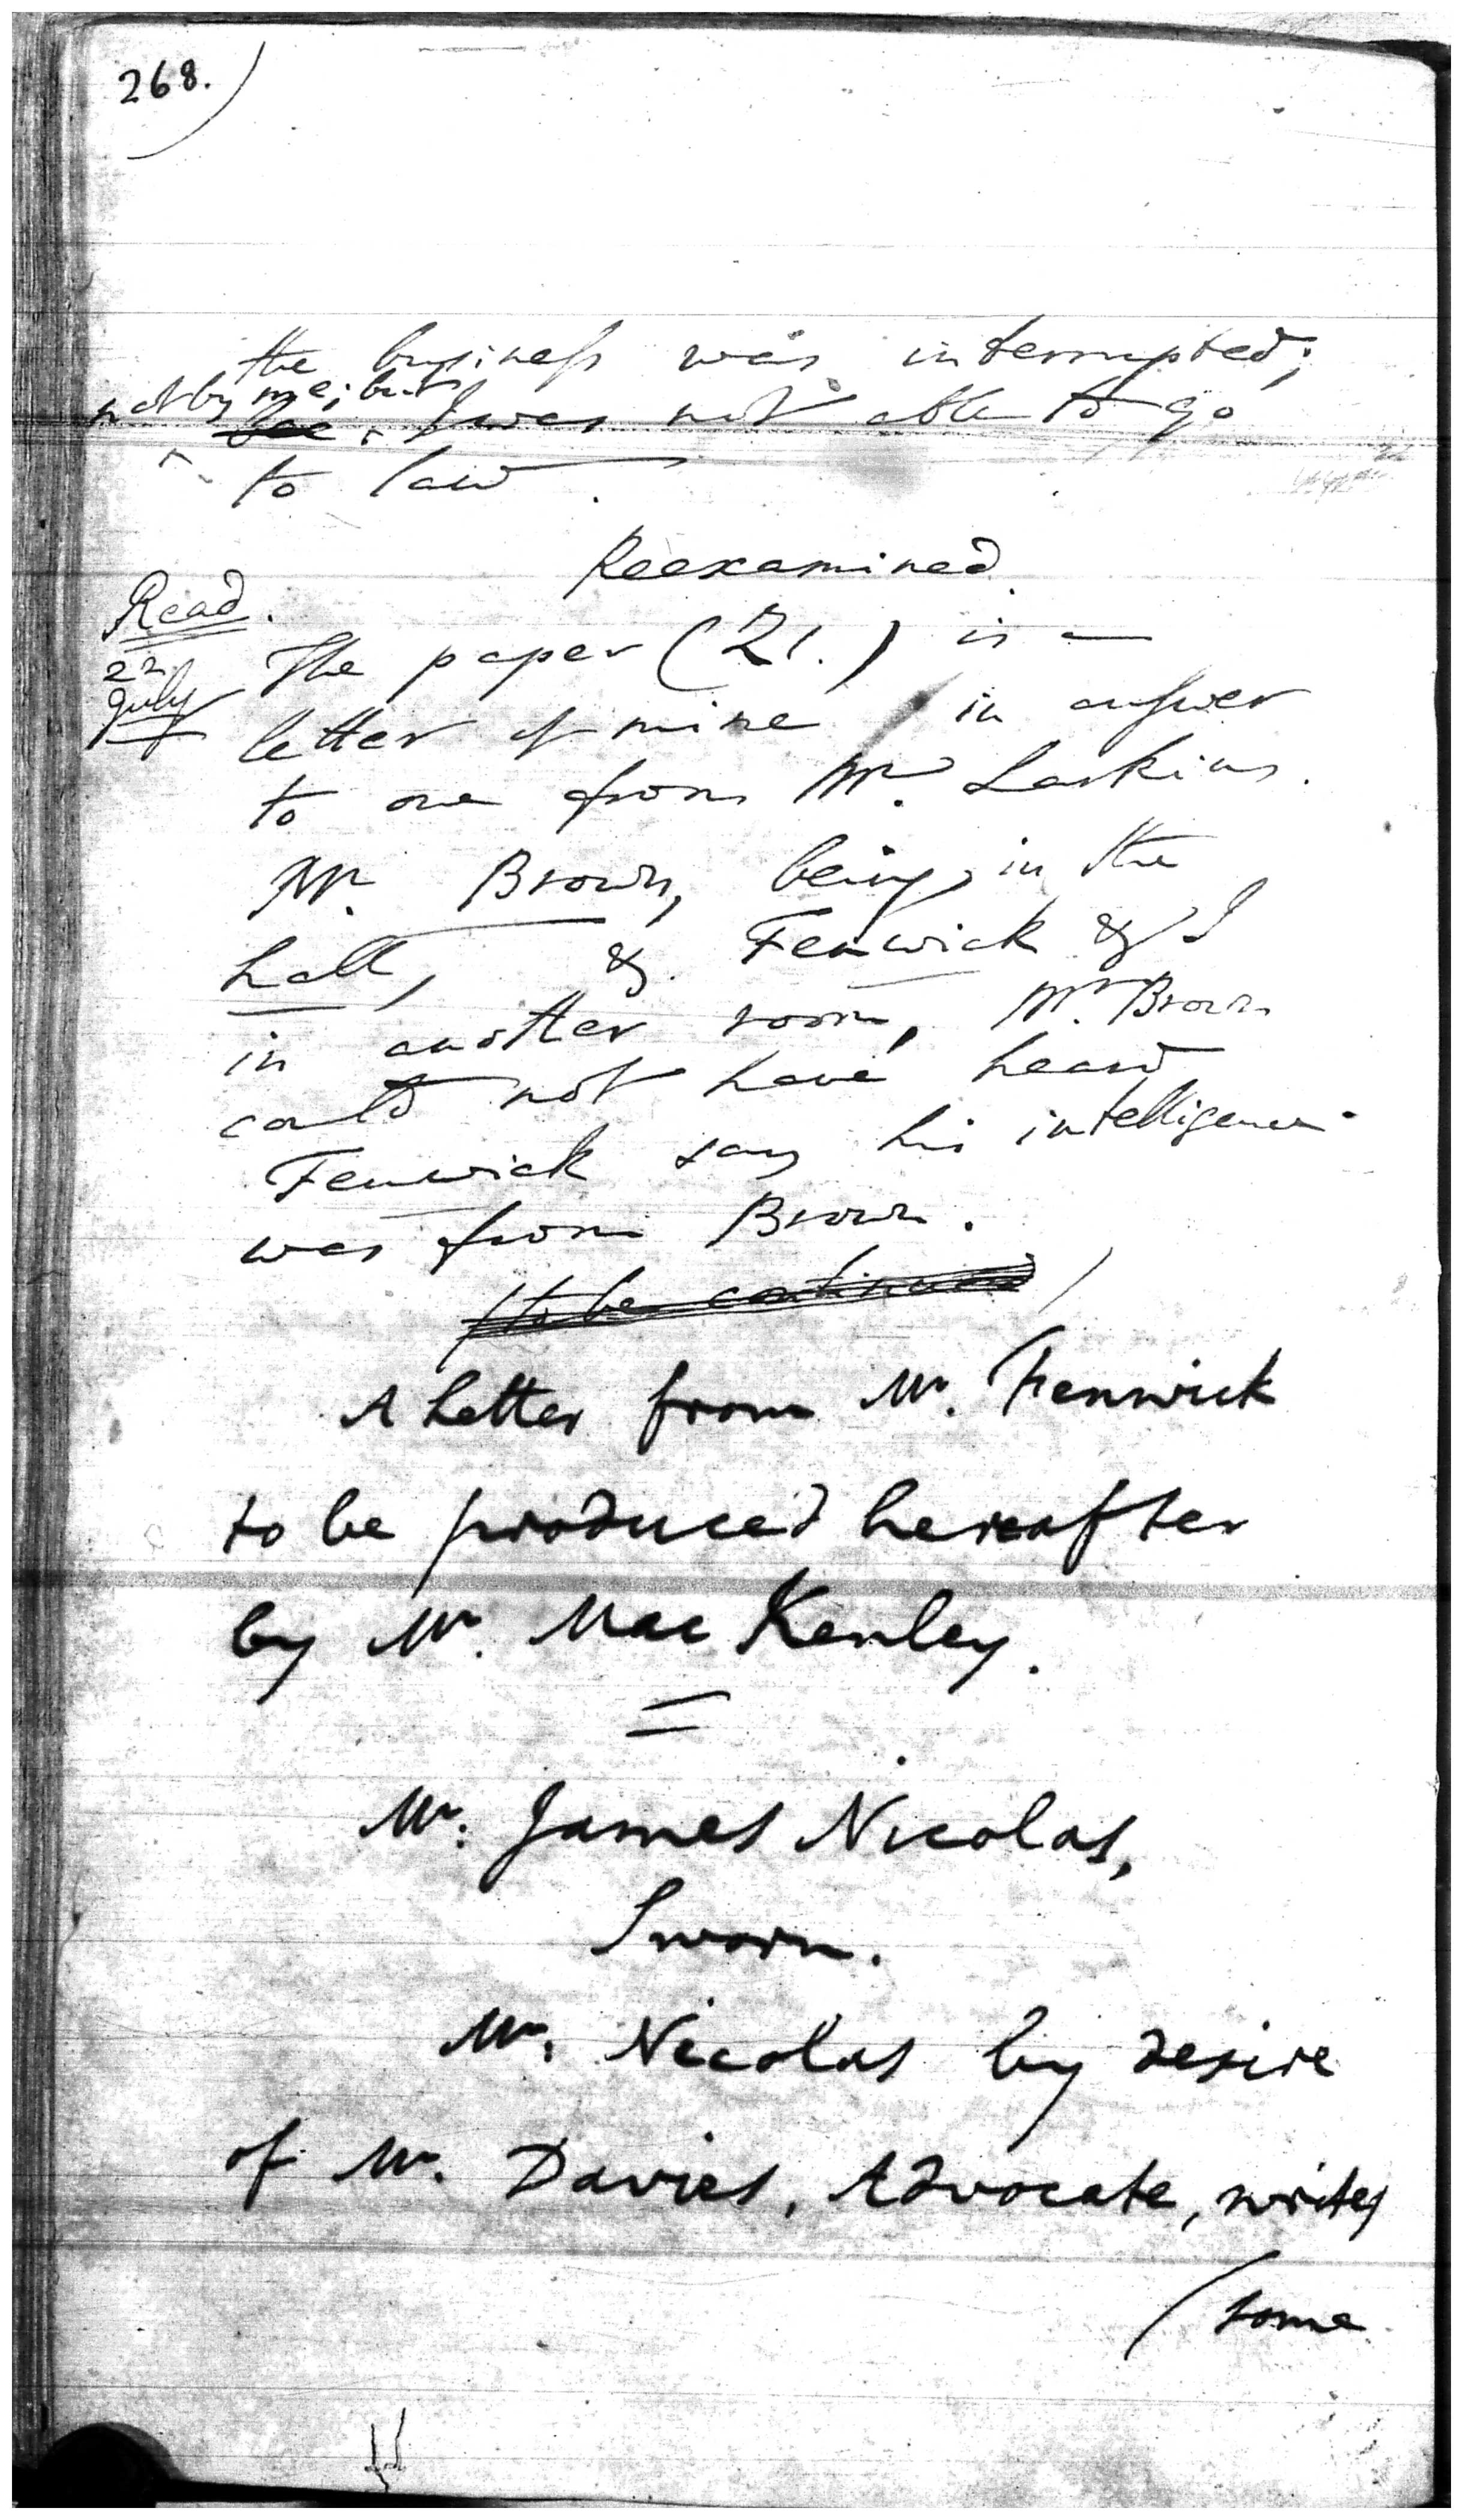 268.)
the business was interrupted;
not by me; but
I was not able to go
to law.
Reexamined.
Read.
22
July
The paper (21.) is a
letter of mine in answer
to one from Mr. Larkins.
Mr. Brown, being in the
hall, &. Fenwick & I
in another room, Mr. Brown
could not have heard
Fenwick say his intelligence
was from Brown.
(to be continued)
A Letter from Mr. Fenwick
to be produced hereafter
by Mr. Mac Kenley.
Mr. James Nicolas,
Sworn.
Mr. Nicolas by desire
of Mr. Davies, Advocate, writes
(some